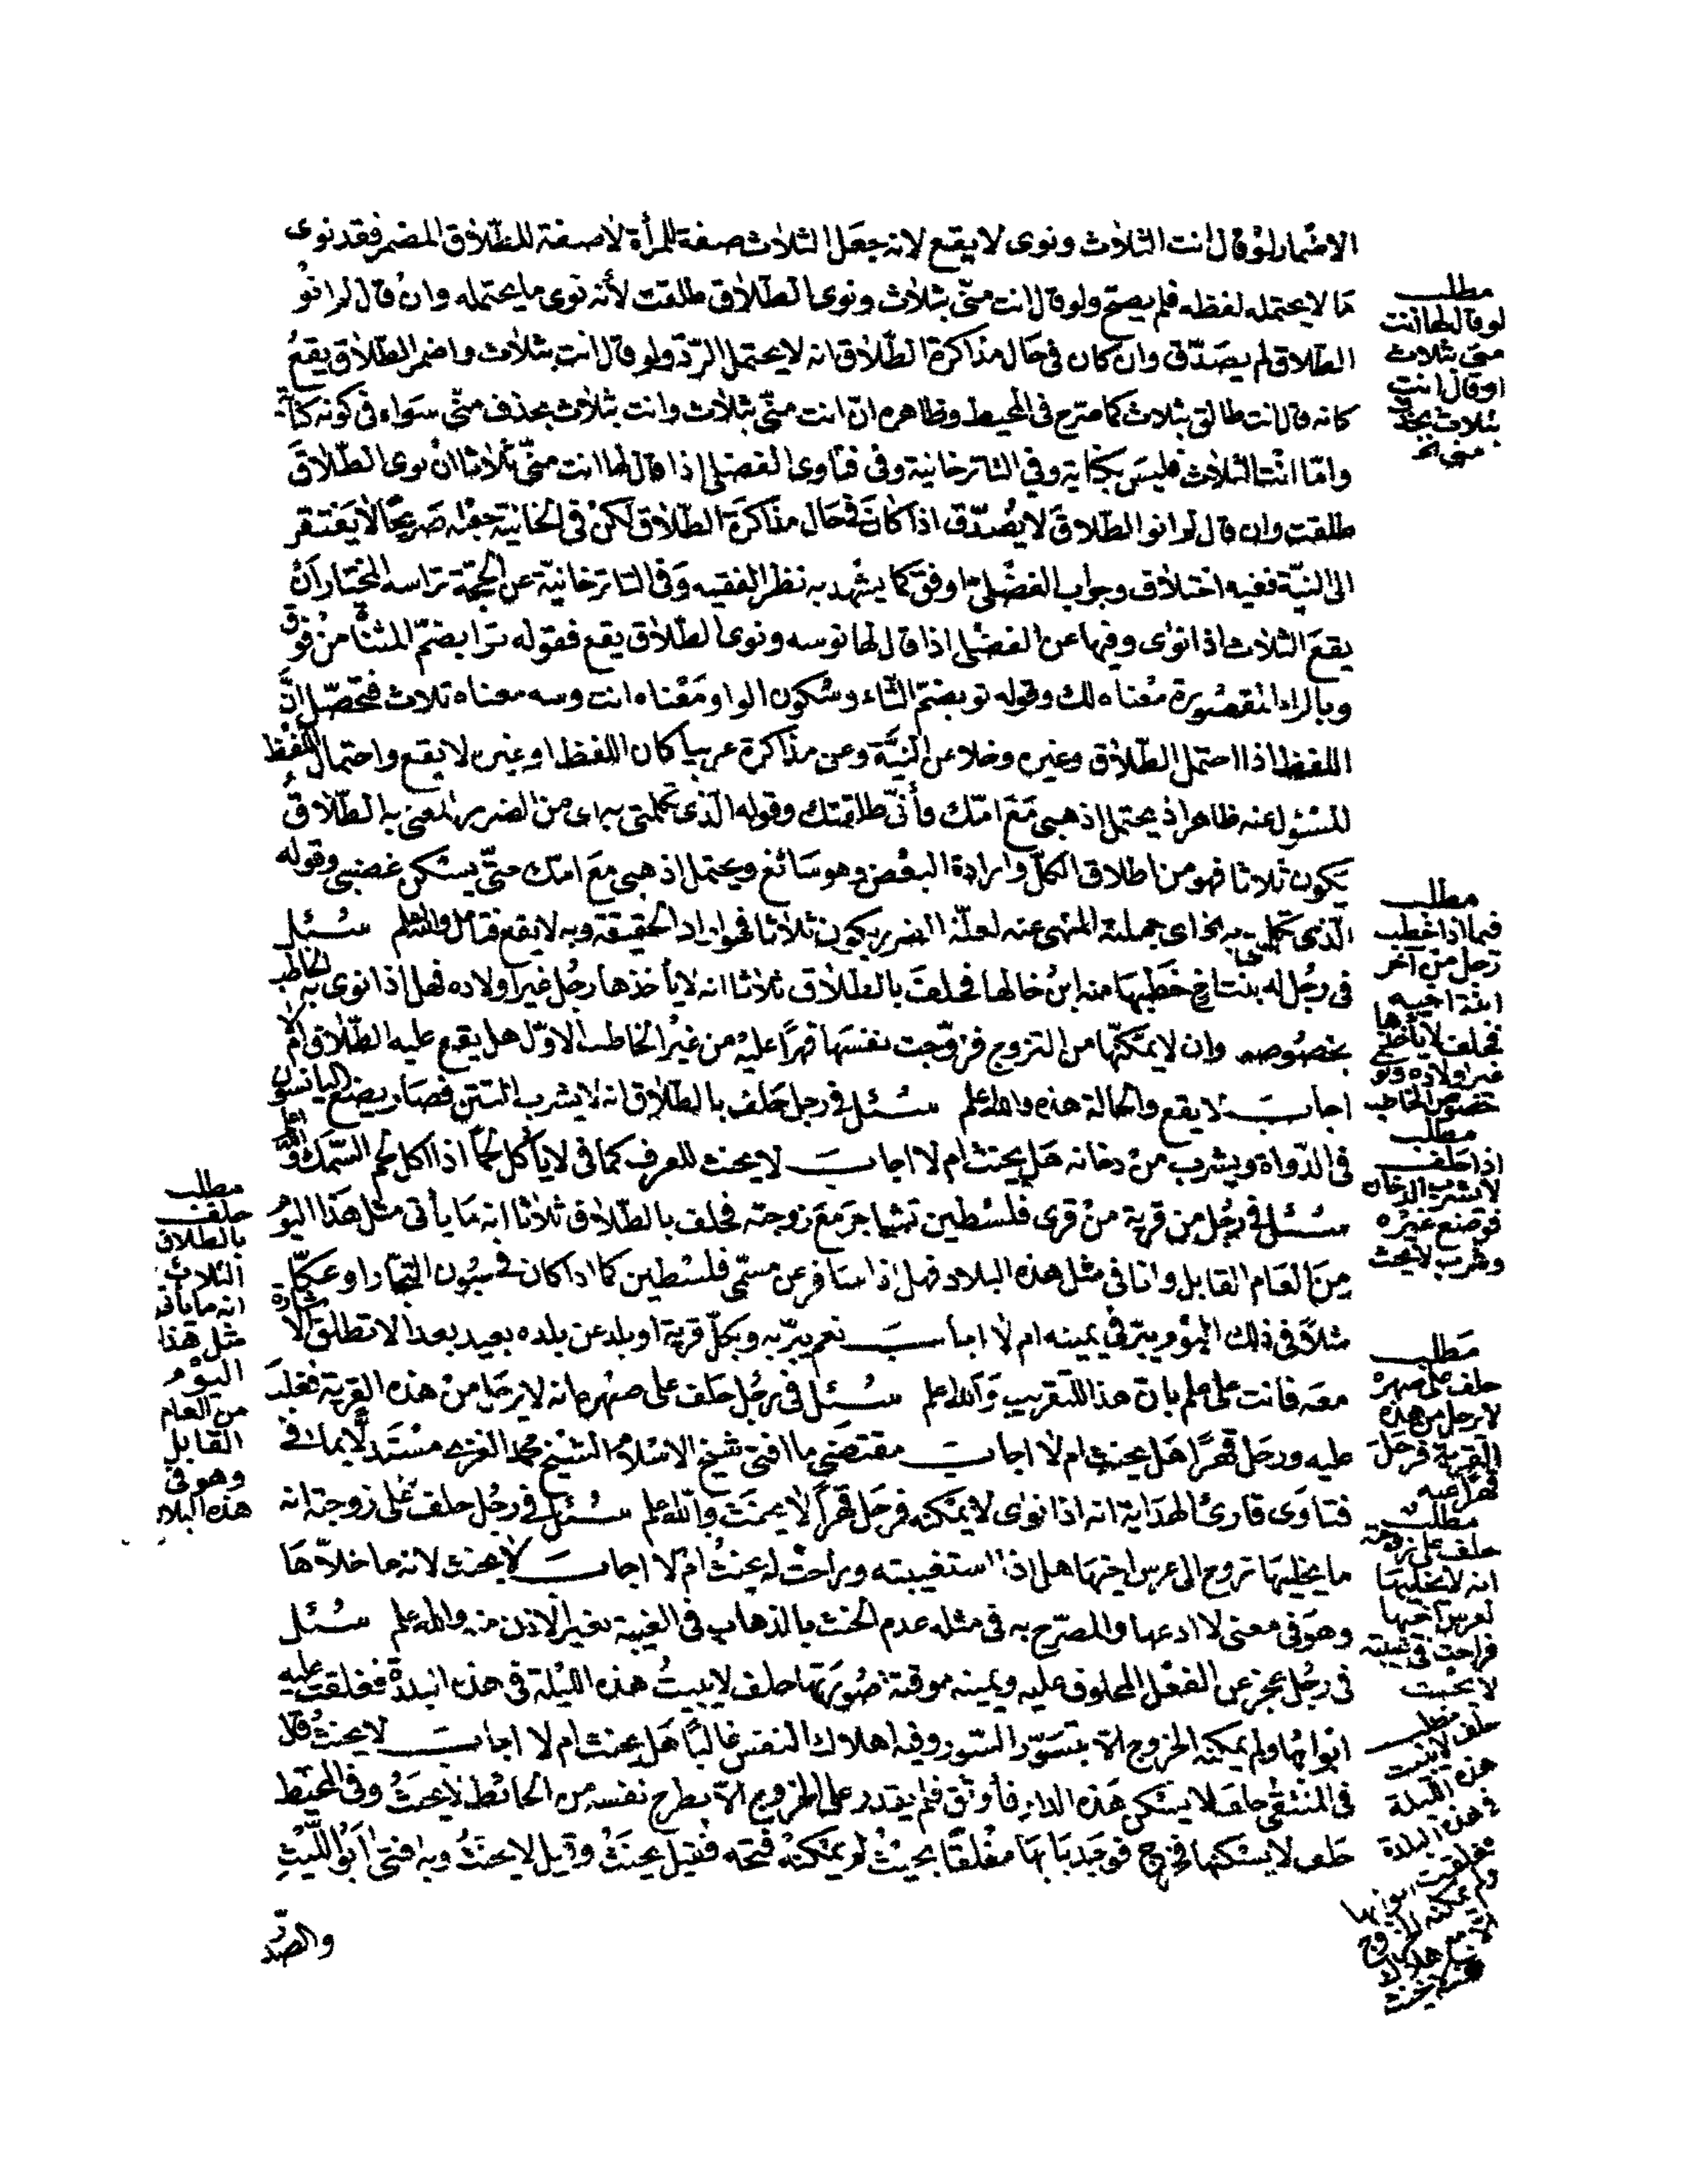 الاضمار لو قال انت الثلاث ونوى لا يقع لانه جعل الثلاث صفة للمرأة لا صفة للطلاق المضمر فقد نوى
ما لا يحتمله لفظه فلم يصح ولو قال انت منّي بثلاث ونوى الطلاق طلقت لأنه نوى ما يحتمله وان قال لم انو
الطلاق لم يصدّق وان كان في حال مذاكرة الطلاق انه لا يحتمل الردّ ولو قال انت بثلاث واضمر الطلاق يقع
كانه قال انت طالق بثلاث كما صرّح في المحيط وظاهره انّ انت منّي بثلاث وانت بثلاث بحذف منّي سواء في كونه كناية
وامّا انت الثلاث فليس بكناية وفي التاترخانية وفي فتاوى الفضلي اذا قال لها انت منّي ثلاثا ان نوى الطلاق
طلقت وان قال لم انو الطلاق لا يصدّق اذا كان في حال مذاكرة الطلاق لكن في الخانية جعله صريحا لا يفتقر
الى النيّة ففيه اختلاف وجواب الفضلي اوفق كما يشهد به نظر الفقيه وفي التاترخانيّة عن الحجّة ترا سه المختار أن
يقع الثلاث اذا نوى وفيها عن الفضلي اذا قال لها توسه ونوى الطلاق يقع فقوله ترا بضمّ المثناة من فوق
وبالراء المقصورة معناه لك وقوله تو بضمّ التاء وسكون الواو ومعناه انت وسه معناه ثلاث فتحصّل انّ
اللفظ اذا احتمل الطلاق وغيره وخلا عن النيّة وعن مذاكرة عربيا كان اللفظ او غيره لا يقع واحتمال اللفظ
للمسئول عنه ظاهر اذ يحتمل اذهبي مع امّك فأنّي طلقتك وقوله الذي تحكمتي به اى من الضرر به المعنى به الطلاق
يكون ثلاثا فهو من اطلاق الكلّ وارادة البعض وهو سائغ ويحتمل اذهبي مع امك حتّى يسكن غضبي وقوله
الذي به الخ اى جملة المنهى عنه لعلّة الضرر يكون ثلاثا فهو اراد الحقيقة وبه لا يقع فتأمل والله اعلم سئل
في رجل له بنت اخ خطبها منه ابن خالها فحلف بالطلاق ثلاثا انه لا يأخذها رجل غير اولاده فهل اذا نوى به الخاطب
بخصوصه وان لا يمكّنها من التزوج فزوّجت نفسها قهرًا عليه من غير الخاطب الاوّل هل يقع عليه الطلاق ام لا
اجاب لا يقع والحالة هذه والله اعلم سئل في رجل حلف بالطلاق انه لا يشرب التتن فصار يضع اليانسون
في الدواة ويشرب من دخانه هل يحنث ام لا اجاب لا يحنث للعرف كما في لا يأكل لحمًا اذا اكل لحم السمك والله اعلم
سئل في رجل من قرية من قرى فلسطين تشاجر مع زوجته فحلف بالطلاق ثلاثا انه ما يأتي مثل هذا اليوم
من العام القابل وانا في مثل هذه البلاد فهل اذا سافر عن مسمّى فلسطين كما اذا كان في سيون التجار او عكّا
مثلاً في ذلك اليوم يبرّ في يمينه ام لا اجاب نعم يبرّ به وبكلّ قرية او بلد عن بلده بعيد بعدا لا تطلق الاشارة
معه فانت على علم بان هذا للتقريب والله اعلم سئل في رجل حلف على صهره انه لا يرحل من هذه القرية فغلب
عليه ورحل قهرًا هل يحنث ام لا اجاب مقتضى ما افتى شيخ الاسلام الشيخ محمد الغزي مستدلا بما في
فتاوى قارئ الهداية انه اذا نوى لا يمكّنه فرحل قهرًا لا يحنث والله اعلم سئل في رجل حلف على زوجته انه
ما يخليها تروح الى عرس اخيها هل اذا استغيبته وراحت له يحنث ام لا اجاب لا يحنث لانه ما خلاّها
وهو في معنى لا ادعها والمصرّح به في مثله عدم الحنث بالذهاب في الغيبة بغير الاذن منه والله اعلم سئل
في رجل عجز عن الفعل المحلوف عليه ويمينه موقتة صورتها حلف لا يبيت هذه الليلة في هذه البلدة فغلقت عليه
ابوابها ولم يمكنه الخروج الاّ بتسوّر السور وفيه اهلاك النفس غالبًا هل يحنث ام لا اجاب لا يحنث قال
في المنتقى حلف لا يسكن هذه الدار فأوثق فلم يقدر على الخروج الاّ بطرح نفسه من الحائط لا يحنث وفي المحيط
حلف لا يسكنها فخرج فوجد بابها مغلقًا بحيث لم يمكنه فتحه فقيل يحنث وقيل لا يحنث وبه افتى ابو الليث
والصد
مطلب
لو قال لها انت
منّي بثلاث
او قال انت
بثلاث بحذف
منّي الخ
مطلب
فيما اذا خطب
رجل من آخر
ابنة اخيه
فحلف لا يأخذها
غير اولاده ونوى
خصوص الخاطب
مطلب
اذا حلف
لا يشرب الدخان
فوضع غيره
وشرب لا يحنث
مطلب
حلف على صهره
لا يرحل من هذه
القرية فرحل
قهرا عنه
مطلب
حلف على زوجته
انه لا يخليها
لعرس اخيها
فراحت في غيبته
لا يحنث
مطلب
حلف لا يبيت
هذه الليلة
في هذه البلدة
فغلقت ابوابها
ولم يمكنه الخروج
لا يحنث
مطلب
حلف
بالطلاق
الثلاث
انه ما يأتي
مثل هذا
اليوم
من العام
القابل
وهو في
هذه البلاد